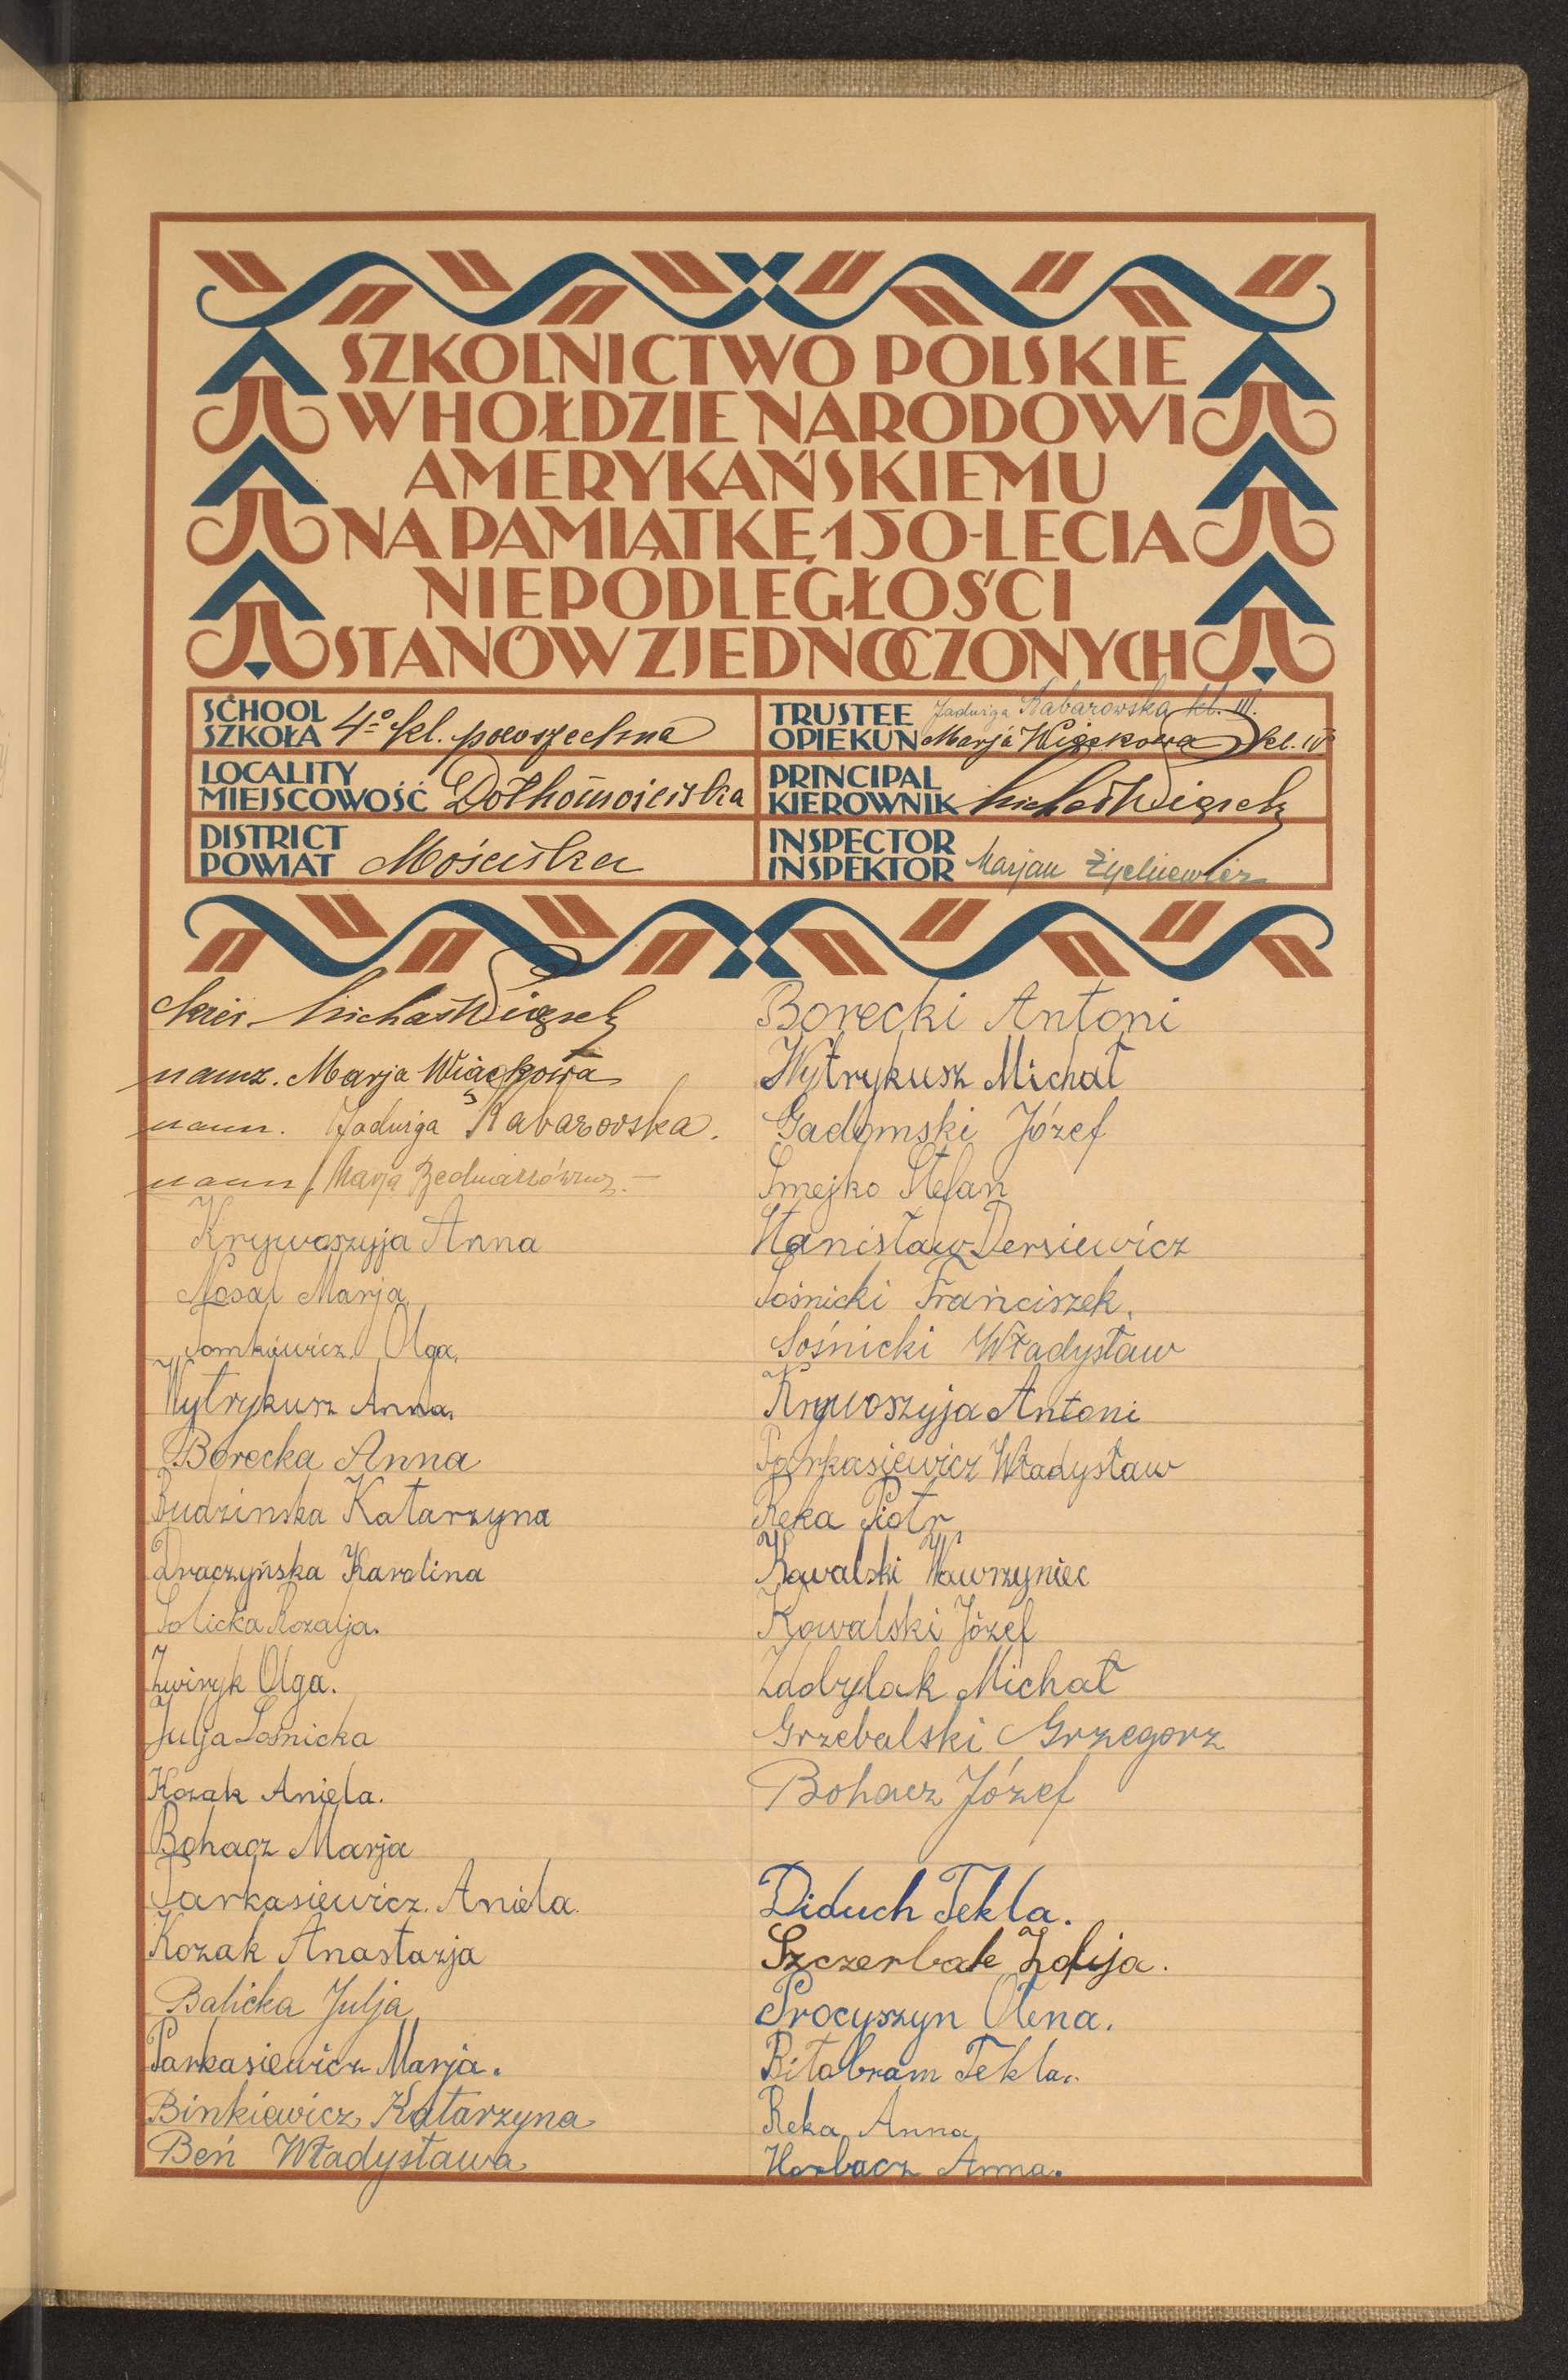 SZKOLNICTWO POLSKIE
W HOŁDZIE NARODOWI
AMERYKAŃSKIEMU
NA PAMIĄTKĘ 150-LECIA
NIEPODLEGŁOŚCI
STANÓW ZJEDNOCZONYCH
SCHOOL
SZKOŁA 4º kl. powszechna
TRUSTEE Jadwiga Kabarowska kl. III.
OPIEKUN Marja Wiąckowa kl. IV
LOCALITY
MIEJSCOWOŚĆ Dołhomościska
PRINCIPAL
KIEROWNIK Michał Wiącek
DISTRICT
POWIAT Mościska
INSPECTOR
INSPEKTOR Marjan
kier. Michał Wiącek
naucz. Marja Wiąckowa
naucz. Jadwiga Kabarowska.
naucz. Marja Bednarzówna
Krywoszyja Anna
Nosal Marja
Tomkiewicz. Olga.
Wytrykusz Anna.
Borecka Anna
Budzinska Katarzyna
Draczyńska Karolina
Solicka Rozalja.
Zwiryk Olga.
Julja Sośnicka
Kozak Aniela.
Bohacz Marja
Parkasiewicz. Aniela.
Kozak Anastazja
Balicka Julja
Parkasiewicz Marja.
Binkiewicz Katarzyna
Beń Władysława
Borecki Antoni
Wytrykusz Michał
Gadomski Józef
Smejko Stefan
Stanisław Dersiewicz
Sośnicki Franciszek.
Sośnicki Władysław
Krywoszyja Antoni
Parkasiewicz Władysław
Reka Piotr
Kowalski Wawrzyniec
Kowalski Józef
Zdobylak Michał
Grzebalski Grzegorz
Bohacz Józef
Diduch Tekla.
Szczerbak Zofija.
Procyszyn Olena.
Biłobram Tekla.
Reka Anna
Horbacz Anna.